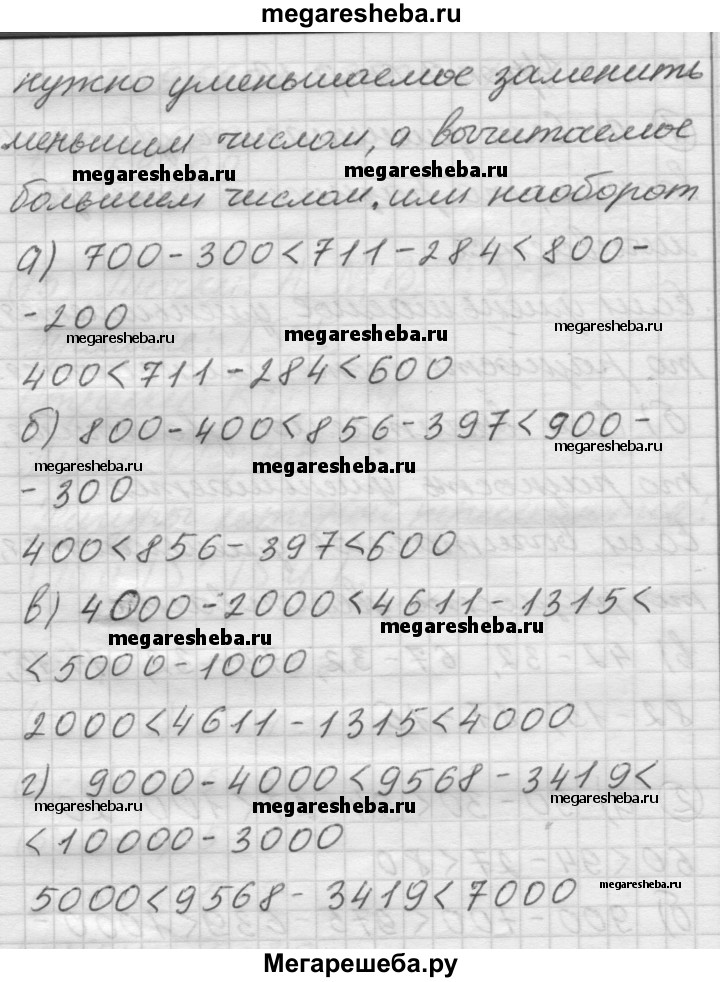 megaresheba.ru
нужно уменьшаемое заменить
меньшим числом, а вычитаемое
megaresheba.ru megaresheba.ru
большем числом, или наоборот
а) 700-300<711-284<800-
-200
megaresheba.ru megaresheba.ru megaresheba.ru
400<711-284<600
б) 800-400<856-397<900-
megaresheba.ru megaresheba.ru megaresheba.ru
-300
400<856-397<600
в) 4000-2000<4611-1315<
megaresheba.ru megaresheba.ru
<5000-1000
2000<4611-1315<4000
г) 9000-4000<9568-3419<
megaresheba.ru megaresheba.ru megaresheba.ru
<10000-3000
5000<9568-3419<7000
megaresheba.ru
Мегарешеба.ру